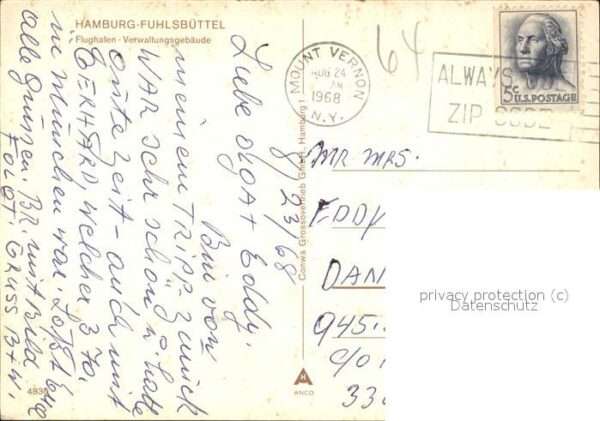 HAMBURG-FUHLSBÜTTEL
Flughafen - Verwaltungsgebäude
8/23/68
Liebe Olga + Eddy.
Bin von
meinem TRIPP- Zurück
WAR sehr schön u. hatte
gute Zeit - auch mit
GERHARD, welcher 3 To.
in München war. Loßt Euch
alle grüssen. BR. mit Bild
FOLGT. GRUSS B+W.
4835
Conwa Grossovertrieb GmbH, Hamburg 1
ANCO
64
MOUNT VERNON
AUG 24
1968
N.Y.
ALWAYS
ZIP CODE
5c
U.S. POSTAGE
MR MRS.
EDDY
DAN
945
C/O
33
privacy protection (c)
Datenschutz